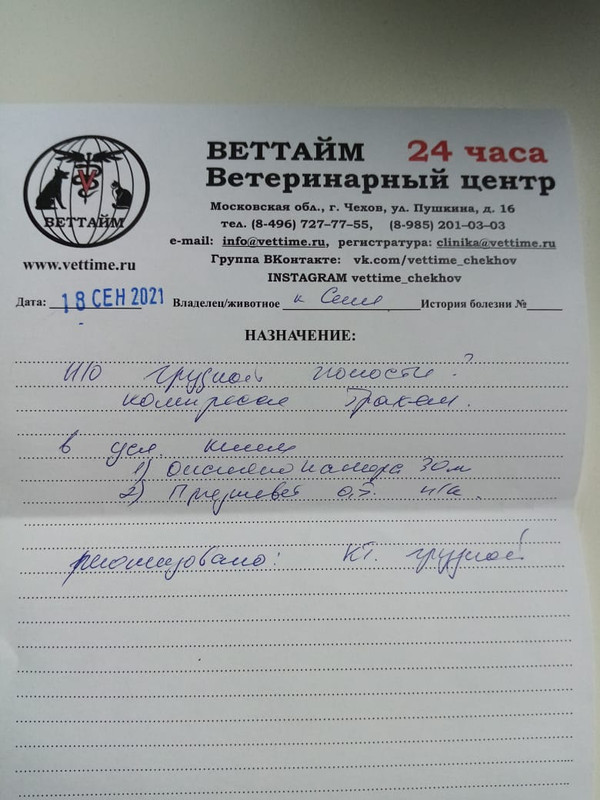 ВЕТТАЙМ 24 часа
Ветеринарный центр
Московская обл., г. Чехов, ул. Пушкина, д. 16
тел. (8-496) 727-77-55, (8-985) 201-03-03
e-mail: info@vettime.ru, регистратура: clinika@vettime.ru
Группа ВКонтакте: vk.com/vettime_chekhov
INSTAGRAM vettime_chekhov
V
ВЕТТАЙМ
www.vettime.ru
Дата: 18 СЕН 2021 Владелец/животное к История болезни №
НАЗНАЧЕНИЕ:
н/о грудной полости?
компрессия трахеи.
в усл. клин
1) Оксигенотерапия 30м
2) 0,5
рекомендовано: КТ грудной